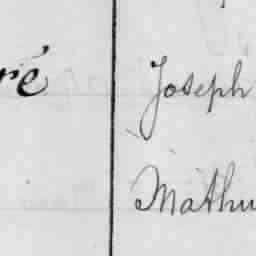 ré Joseph
Mathu